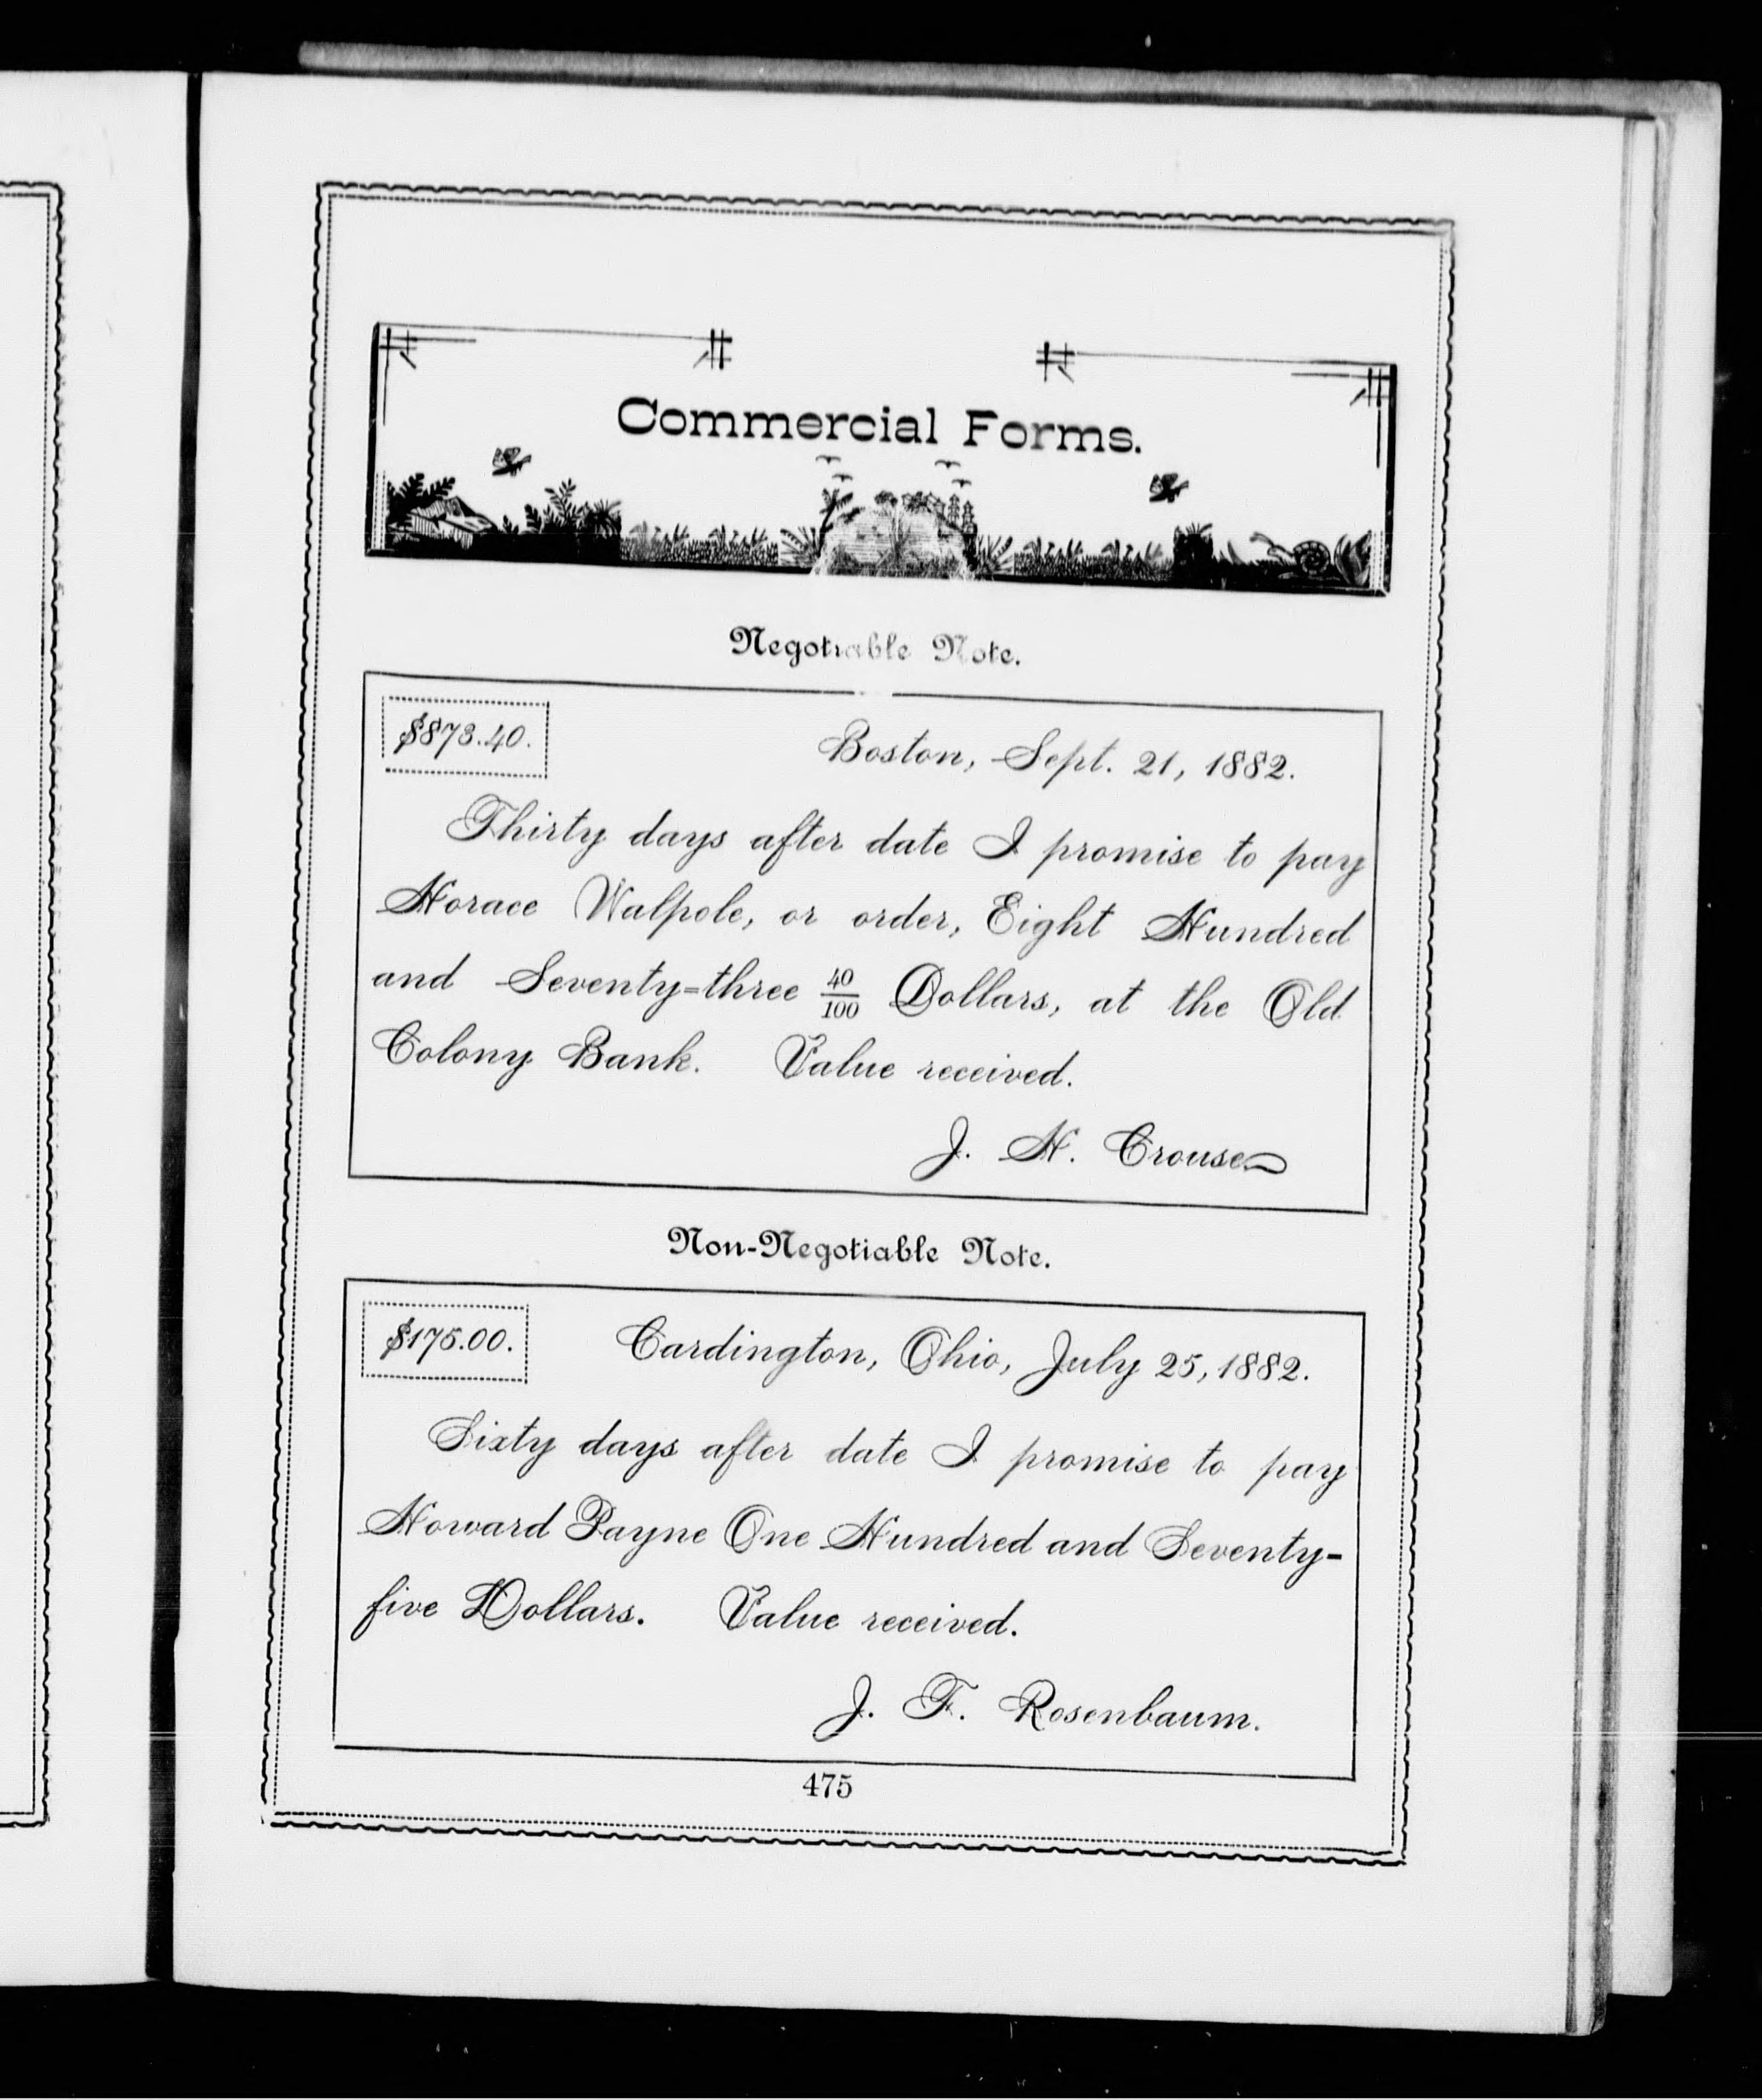 Commercial Forms.
Negotiable Note.
$873.40.
Boston, Sept. 21, 1882.
Thirty days after date I promise to pay
Horace Walpole, or order, Eight Hundred
and Seventy=three 40/100 Dollars, at the Old
Colony Bank. Value received.
J. H. Crouse
Non-Negotiable Note.
$175.00.
Cardington, Ohio, July 25, 1882.
Sixty days after date I promise to pay
Howard Payne One Hundred and Seventy-
five Dollars. Value received.
J. F. Rosenbaum.
475